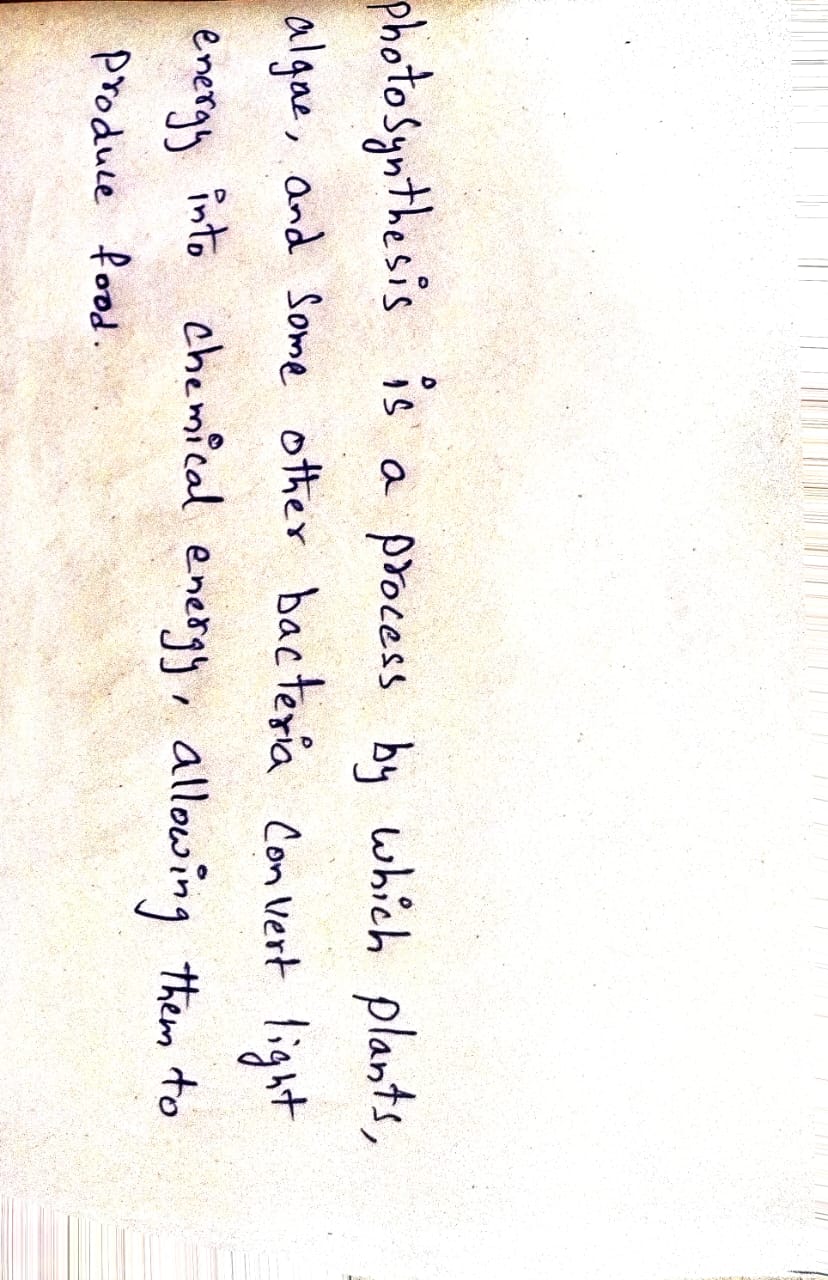 photosynthesis is a process by which plants,
algae, and some other bacteria convert light
energy into chemical energy, allowing them to
produce food.